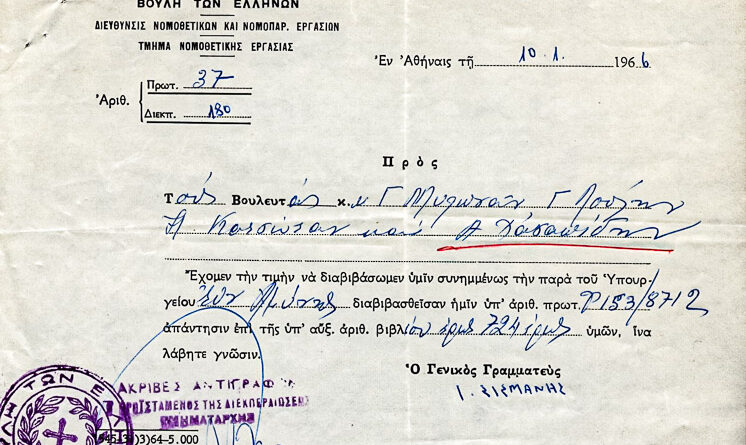 ΒΟΥΛΗ ΤΩΝ ΕΛΛΗΝΩΝ
ΔΙΕΥΘΥΝΣΙΣ ΝΟΜΟΘΕΤΙΚΩΝ ΚΑΙ ΝΟΜΟΠΑΡ. ΕΡΓΑΣΙΩΝ
ΤΜΗΜΑ ΝΟΜΟΘΕΤΙΚΗΣ ΕΡΓΑΣΙΑΣ
Ἐν Ἀθήναις τῇ 10.1. 1966
Ἀριθ.
Πρωτ. 37
Διεκπ. 180
Πρὸς
Τοὺς Βουλευτὰς κ.κ Γ Μυλωνᾶν Γ
καὶ
Ἔχομεν τὴν τιμὴν νὰ διαβιβάσωμεν ὑμῖν συνημμένως τὴν παρὰ τοῦ Ὑπουρ-
γείου Ἐθν Ἀμύνης διαβιβασθεῖσαν ἡμῖν ὑπ' ἀριθ. πρωτ. Φ153/8712
ἀπάντησιν ἐπὶ τῆς ὑπ' αὔξ. ἀριθ. βιβλίου 724 ὑμῶν, ἵνα
λάβητε γνῶσιν.
Ὁ Γενικὸς Γραμματεὺς
Ι. ΣΙΣΜΑΝΗΣ
ΑΚΡΙΒΕΣ ΑΝΤΙΓΡΑΦΟΝ
ΠΡΟΪΣΤΑΜΕΝΟΣ ΤΗΣ ΔΙΕΚΠΕΡΑΙΩΣΕΩΣ
ΤΜΗΜΑΤΑΡΧΗΣ
ΒΟΥΛΗ ΤΩΝ Ε
)64-5.000